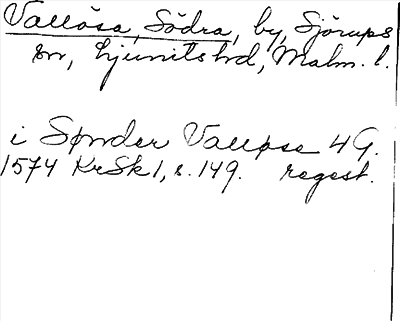 Vallösa, Södra, by, Sjörups
sn, Ljunits hd, Malm. l.
i Sønder Valløse 4 G.
1574 KrSk 1, s. 149. regest.